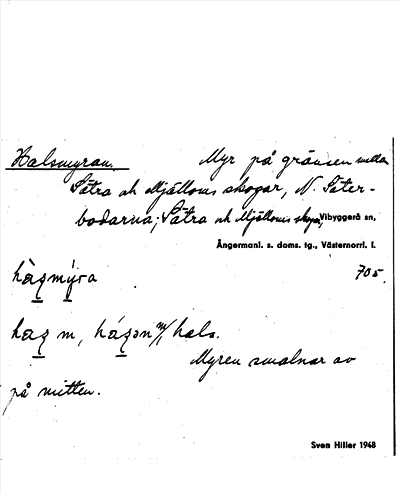 Halsmyran. Myr på gränsen mellan
Sätra och Mjälloms skogar, N. Säter-
bodarna; Sätra och Mjälloms skogar, Vibyggerå sn,
Ångermanl. s. doms. tg., Västernorrl. l.
705.
m, hals.
Myren smalnar av
på mitten.
Sven Hiller 1948